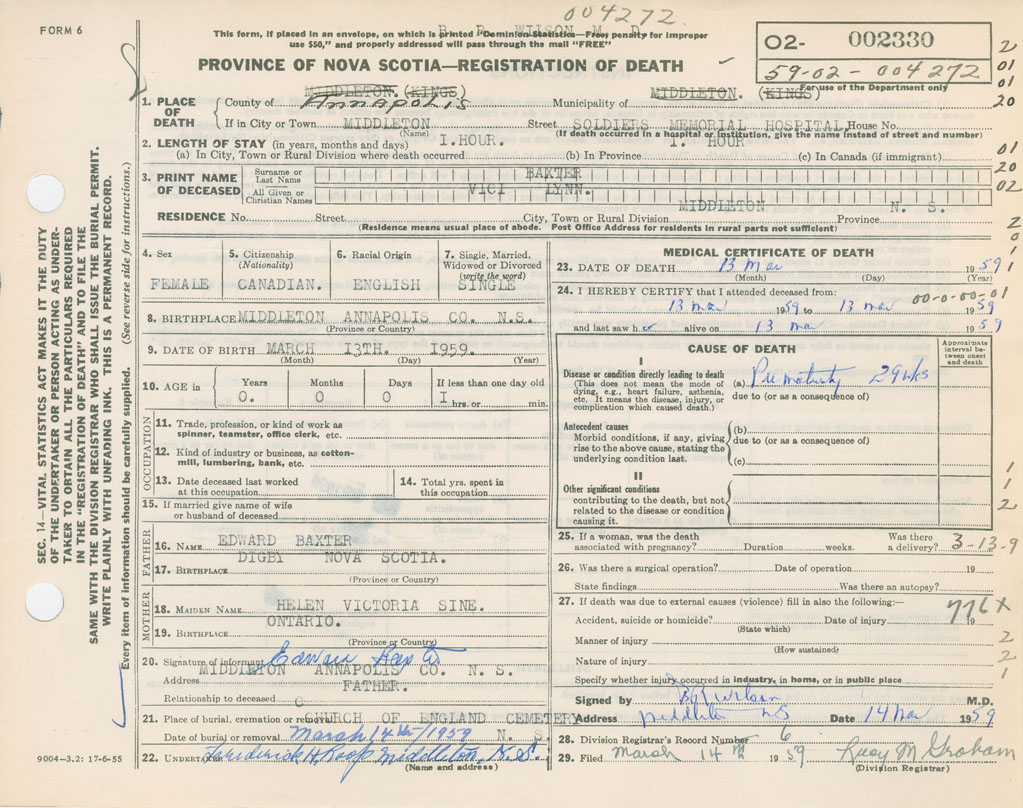 004272
FORM 6
B. R. WILSON M. D.
This form, if placed in an envelope, on which is printed "Dominion Statistics—Free, penalty for improper
use $50," and properly addressed will pass through the mail "FREE"
02- 002330
59-02-004272
For use of the Department only
PROVINCE OF NOVA SCOTIA—REGISTRATION OF DEATH
MIDDLETON. (KINGS)
MIDDLETON. (KINGS)
1. PLACE OF DEATH County of Annapolis Municipality of
If in City or Town MIDDLETON Street SOLDIERS MEMORIAL HOSPITAL House No.
(Name) (If death occurred in a hospital or institution, give the name instead of street and number)
2. LENGTH OF STAY (in years, months and days) I.HOUR. I. HOUR
(a) In City, Town or Rural Division where death occurred (b) In Province (c) In Canada (if immigrant)
3. PRINT NAME OF DECEASED Surname or Last Name BAXTER
All Given or Christian Names VICI LYNN.
MIDDLETON N. S.
RESIDENCE No. Street City, Town or Rural Division Province
(Residence means usual place of abode. Post Office Address for residents in rural parts not sufficient)
4. Sex 5. Citizenship (Nationality) 6. Racial Origin 7. Single, Married, Widowed or Divorced (write the word)
FEMALE CANADIAN. ENGLISH SINGLE
8. BIRTHPLACE MIDDLETON ANNAPOLIS CO. N.S.
(Province or Country)
9. DATE OF BIRTH MARCH I3TH. I959.
(Month) (Day) (Year)
10. AGE in Years Months Days If less than one day old
0. 0 0 I hrs. or min.
OCCUPATION
11. Trade, profession, or kind of work as
spinner, teamster, office clerk, etc.
12. Kind of industry or business, as cotton-
mill, lumbering, bank, etc.
13. Date deceased last worked at this occupation
14. Total yrs. spent in this occupation
15. If married give name of wife
or husband of deceased
FATHER
16. NAME EDWARD BAXTER
DIGBY NOVA SCOTIA.
17. BIRTHPLACE
(Province or Country)
MOTHER
18. MAIDEN NAME HELEN VICTORIA SINE.
ONTARIO.
19. BIRTHPLACE
(Province or Country)
20. Signature of informant Edward Baxter
MIDDLETON ANNAPOLIS CO. N. S.
Address
FATHER.
Relationship to deceased
21. Place of burial, cremation or removal CHURCH OF ENGLAND CEMETERY
Date of burial or removal March 14th/1959 N. S.
22. UNDERTAKER Frederick H Roop Middleton, N.S.
(Name and address)
9004—3.2: 17-6-55
MEDICAL CERTIFICATE OF DEATH
23. DATE OF DEATH 13 Mar 1959
(Month) (Day) (Year)
24. I HEREBY CERTIFY that I attended deceased from: 00-0-00-01
13 mar 1959 to 13 mar 1959
and last saw her alive on 13 mar 1959
CAUSE OF DEATH
Approximate interval between onset and death
I
Disease or condition directly leading to death
(This does not mean the mode of dying, e.g., heart failure, asthenia, etc. It means the disease, injury, or complication which caused death.)
(a) Prematurity 29 wks
due to (or as a consequence of)
Antecedent causes
Morbid conditions, if any, giving rise to the above cause, stating the underlying condition last.
(b)
due to (or as a consequence of)
(c)
II
Other significant conditions
contributing to the death, but not related to the disease or condition causing it.
25. If a woman, was the death associated with pregnancy? Duration weeks. Was there a delivery? 3-13-9
26. Was there a surgical operation? Date of operation 19
State findings Was there an autopsy?
27. If death was due to external causes (violence) fill in also the following:—
776X
Accident, suicide or homicide? Date of injury 19
(State which)
Manner of injury
(How sustained)
Nature of injury
Specify whether injury occurred in industry, in home, or in public place
Signed by B R Wilson M.D.
Address Middleton NS Date 14 Mar 1959
28. Division Registrar's Record Number 6
29. Filed March 14th 1959 Lucy M. Graham
(Division Registrar)
SEC. 14—VITAL STATISTICS ACT MAKES IT THE DUTY
OF THE UNDERTAKER OR PERSON ACTING AS UNDER-
TAKER TO OBTAIN ALL THE PARTICULARS REQUIRED
IN THE "REGISTRATION OF DEATH" AND TO FILE THE
SAME WITH THE DIVISION REGISTRAR WHO SHALL ISSUE THE BURIAL PERMIT.
WRITE PLAINLY WITH UNFADING INK. THIS IS A PERMANENT RECORD.
Every item of information should be carefully supplied. (See reverse side for instructions.)
2
01
01
20
01
20
02
2
0
1
1
1
1
2
2
2
1